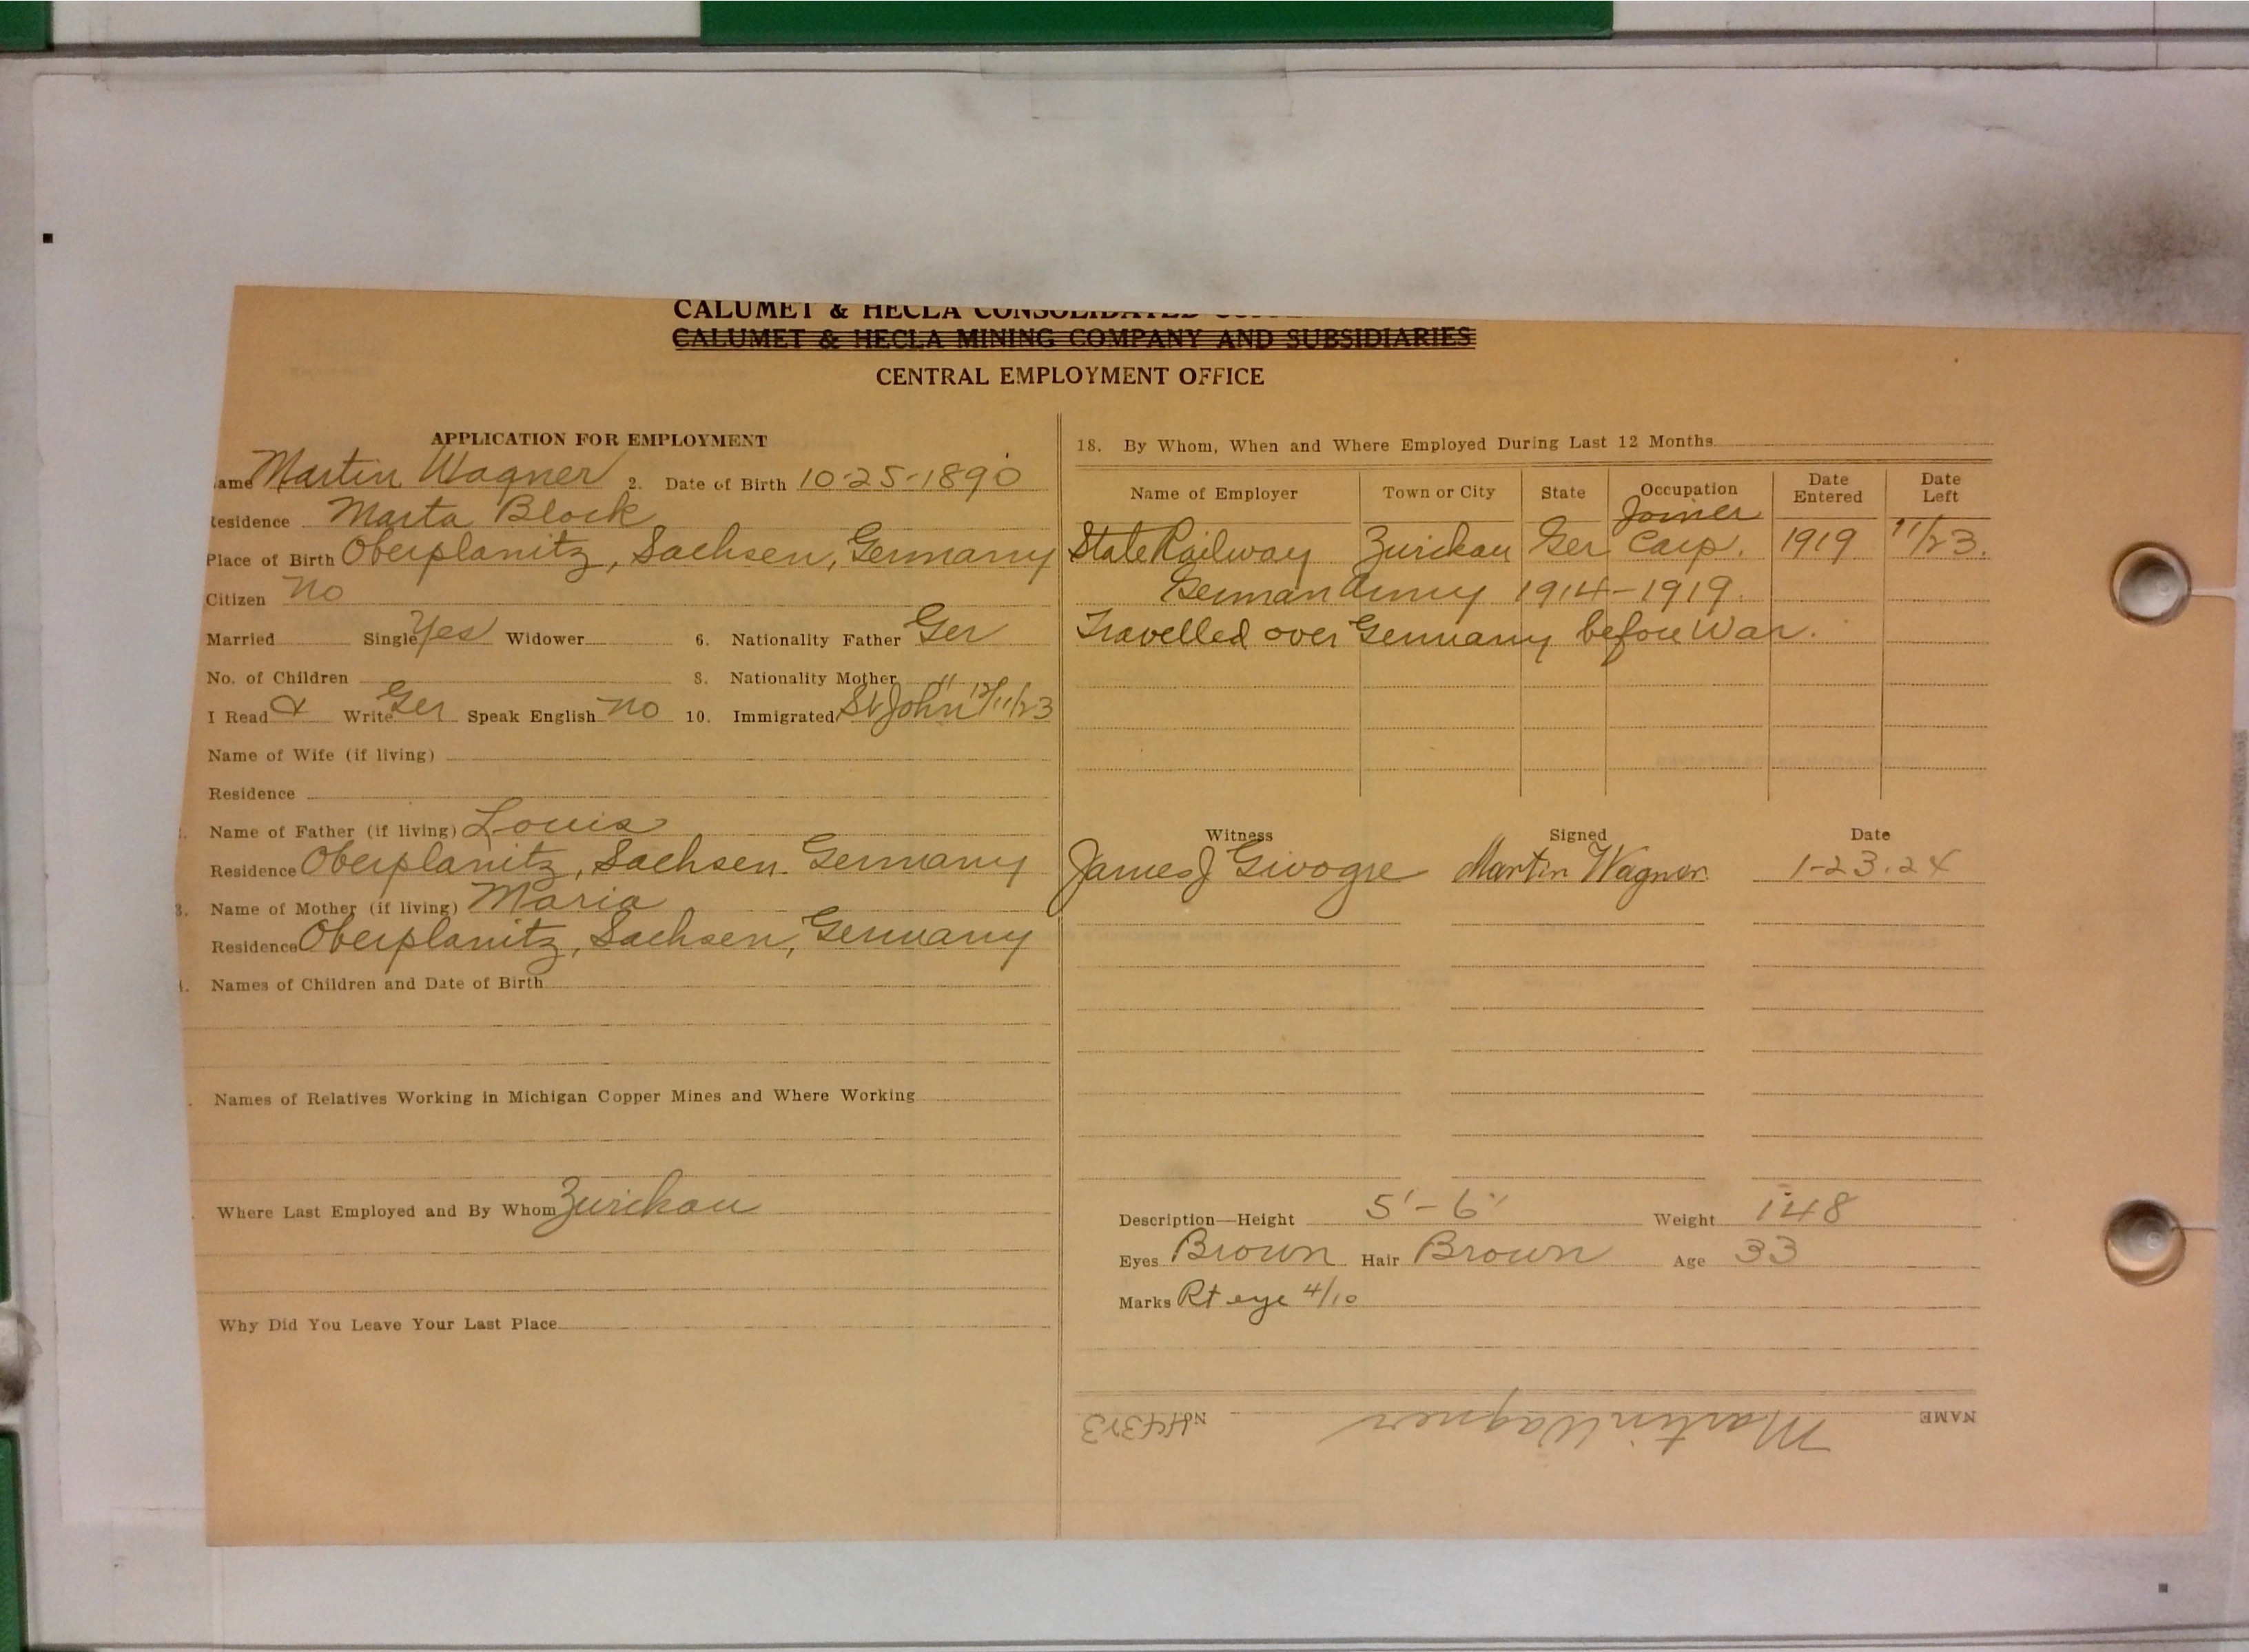 CALUMET & HECLA CONSOLIDATED
CALUMET & HECLA MINING COMPANY AND SUBSIDIARIES
CENTRAL EMPLOYMENT OFFICE
APPLICATION FOR EMPLOYMENT
ame Martin Wagner 2. Date of Birth 10-25-1890
Residence Marta Block
Place of Birth Oberplanitz, Sachsen, Germany
Citizen No
Married Single Yes Widower 6. Nationality Father Ger
No. of Children 8. Nationality Mother "
I Read & Write Ger Speak English No 10. Immigrated St John 12/11/23
Name of Wife (if living)
Residence
Name of Father (if living) Louis
Residence Oberplanitz, Sachsen. Germany
3. Name of Mother (if living) Maria
Residence Oberplanitz, Sachsen, Germany
Names of Children and Date of Birth
Names of Relatives Working in Michigan Copper Mines and Where Working
Where Last Employed and By Whom Zwickau
Why Did You Leave Your Last Place
18. By Whom, When and Where Employed During Last 12 Months
Name of Employer Town or City State Occupation Date Entered Date Left
Joiner
State Railway Zwickau Ger Carp. 1919 11/23.
German Army 1914-1919.
Travelled over Germany before War.
Witness Signed Date
James J Givogre Martin Wagner. 1-23.24
Description—Height 5'-6" Weight 148
Eyes Brown Hair Brown Age 33
Marks Rt eye 4/10
NAME Martin Wagner No